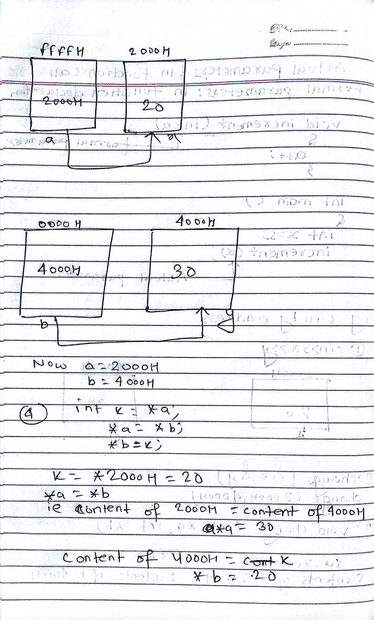 FFFFH 2000H
2000H 20
a
0000H 4000H
4000H 30
b
Now a = 2000H
b = 4000H
④ int k = *a;
*a = *b;
*b = k;
k = *2000H = 20
*a = *b
ie content of 2000H = content of 4000H
*a = 30
Content of 4000H = k
*b = 20